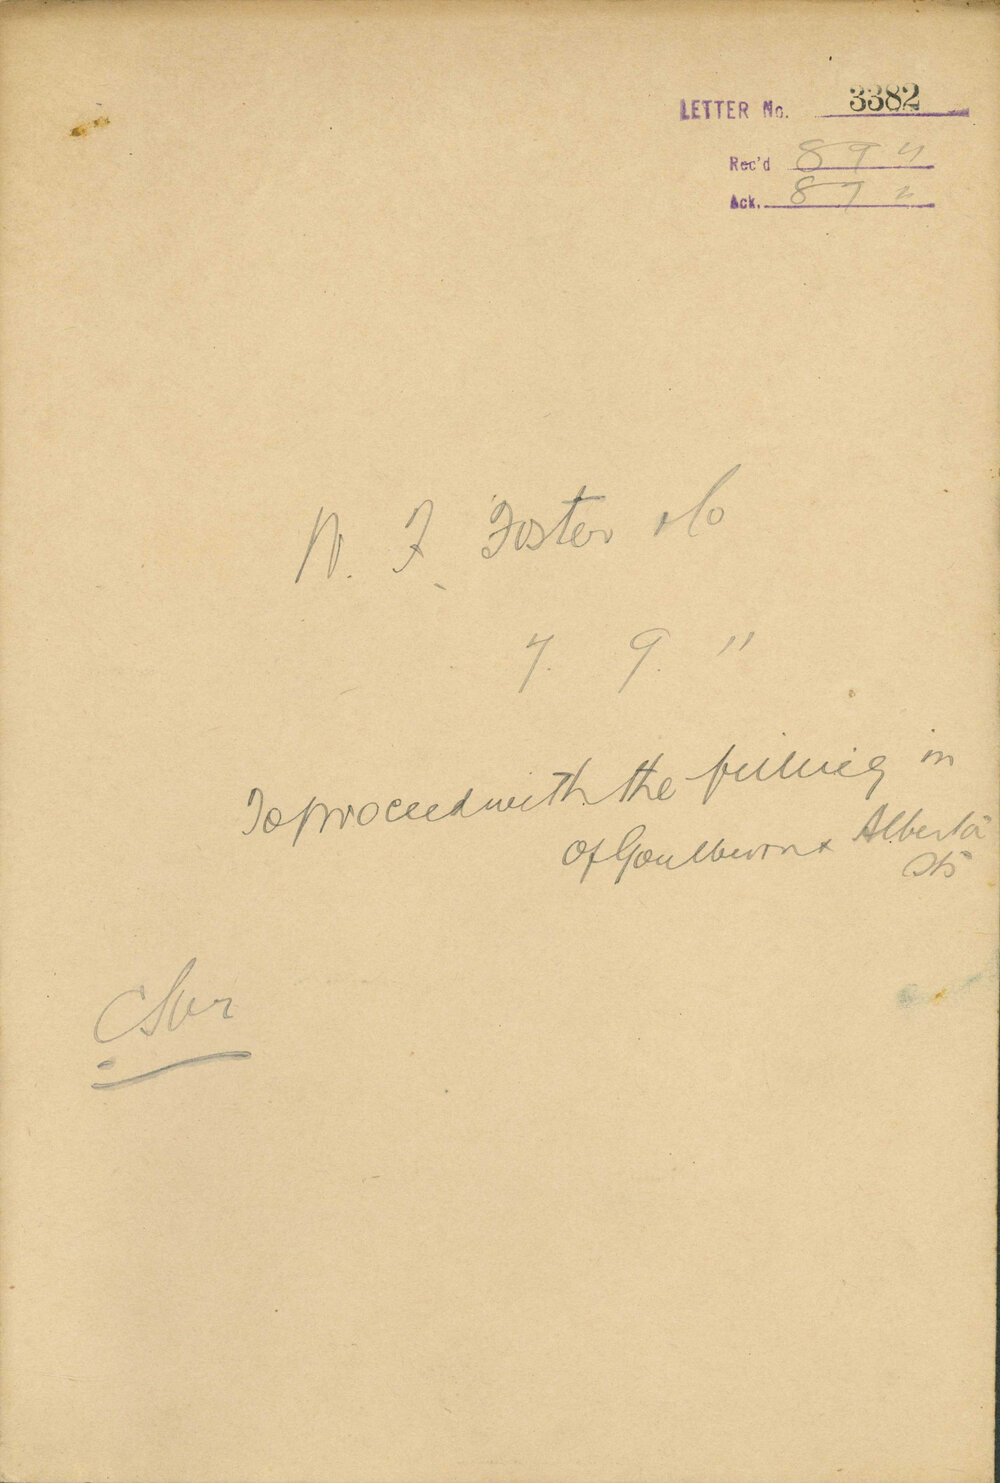 LETTER No. 3382
Rec'd 8 9 11
Ack. 8 9
Foster & Co
7. 9. 11
To proceed with the filling in
of Goulburn & Alberta
Sts